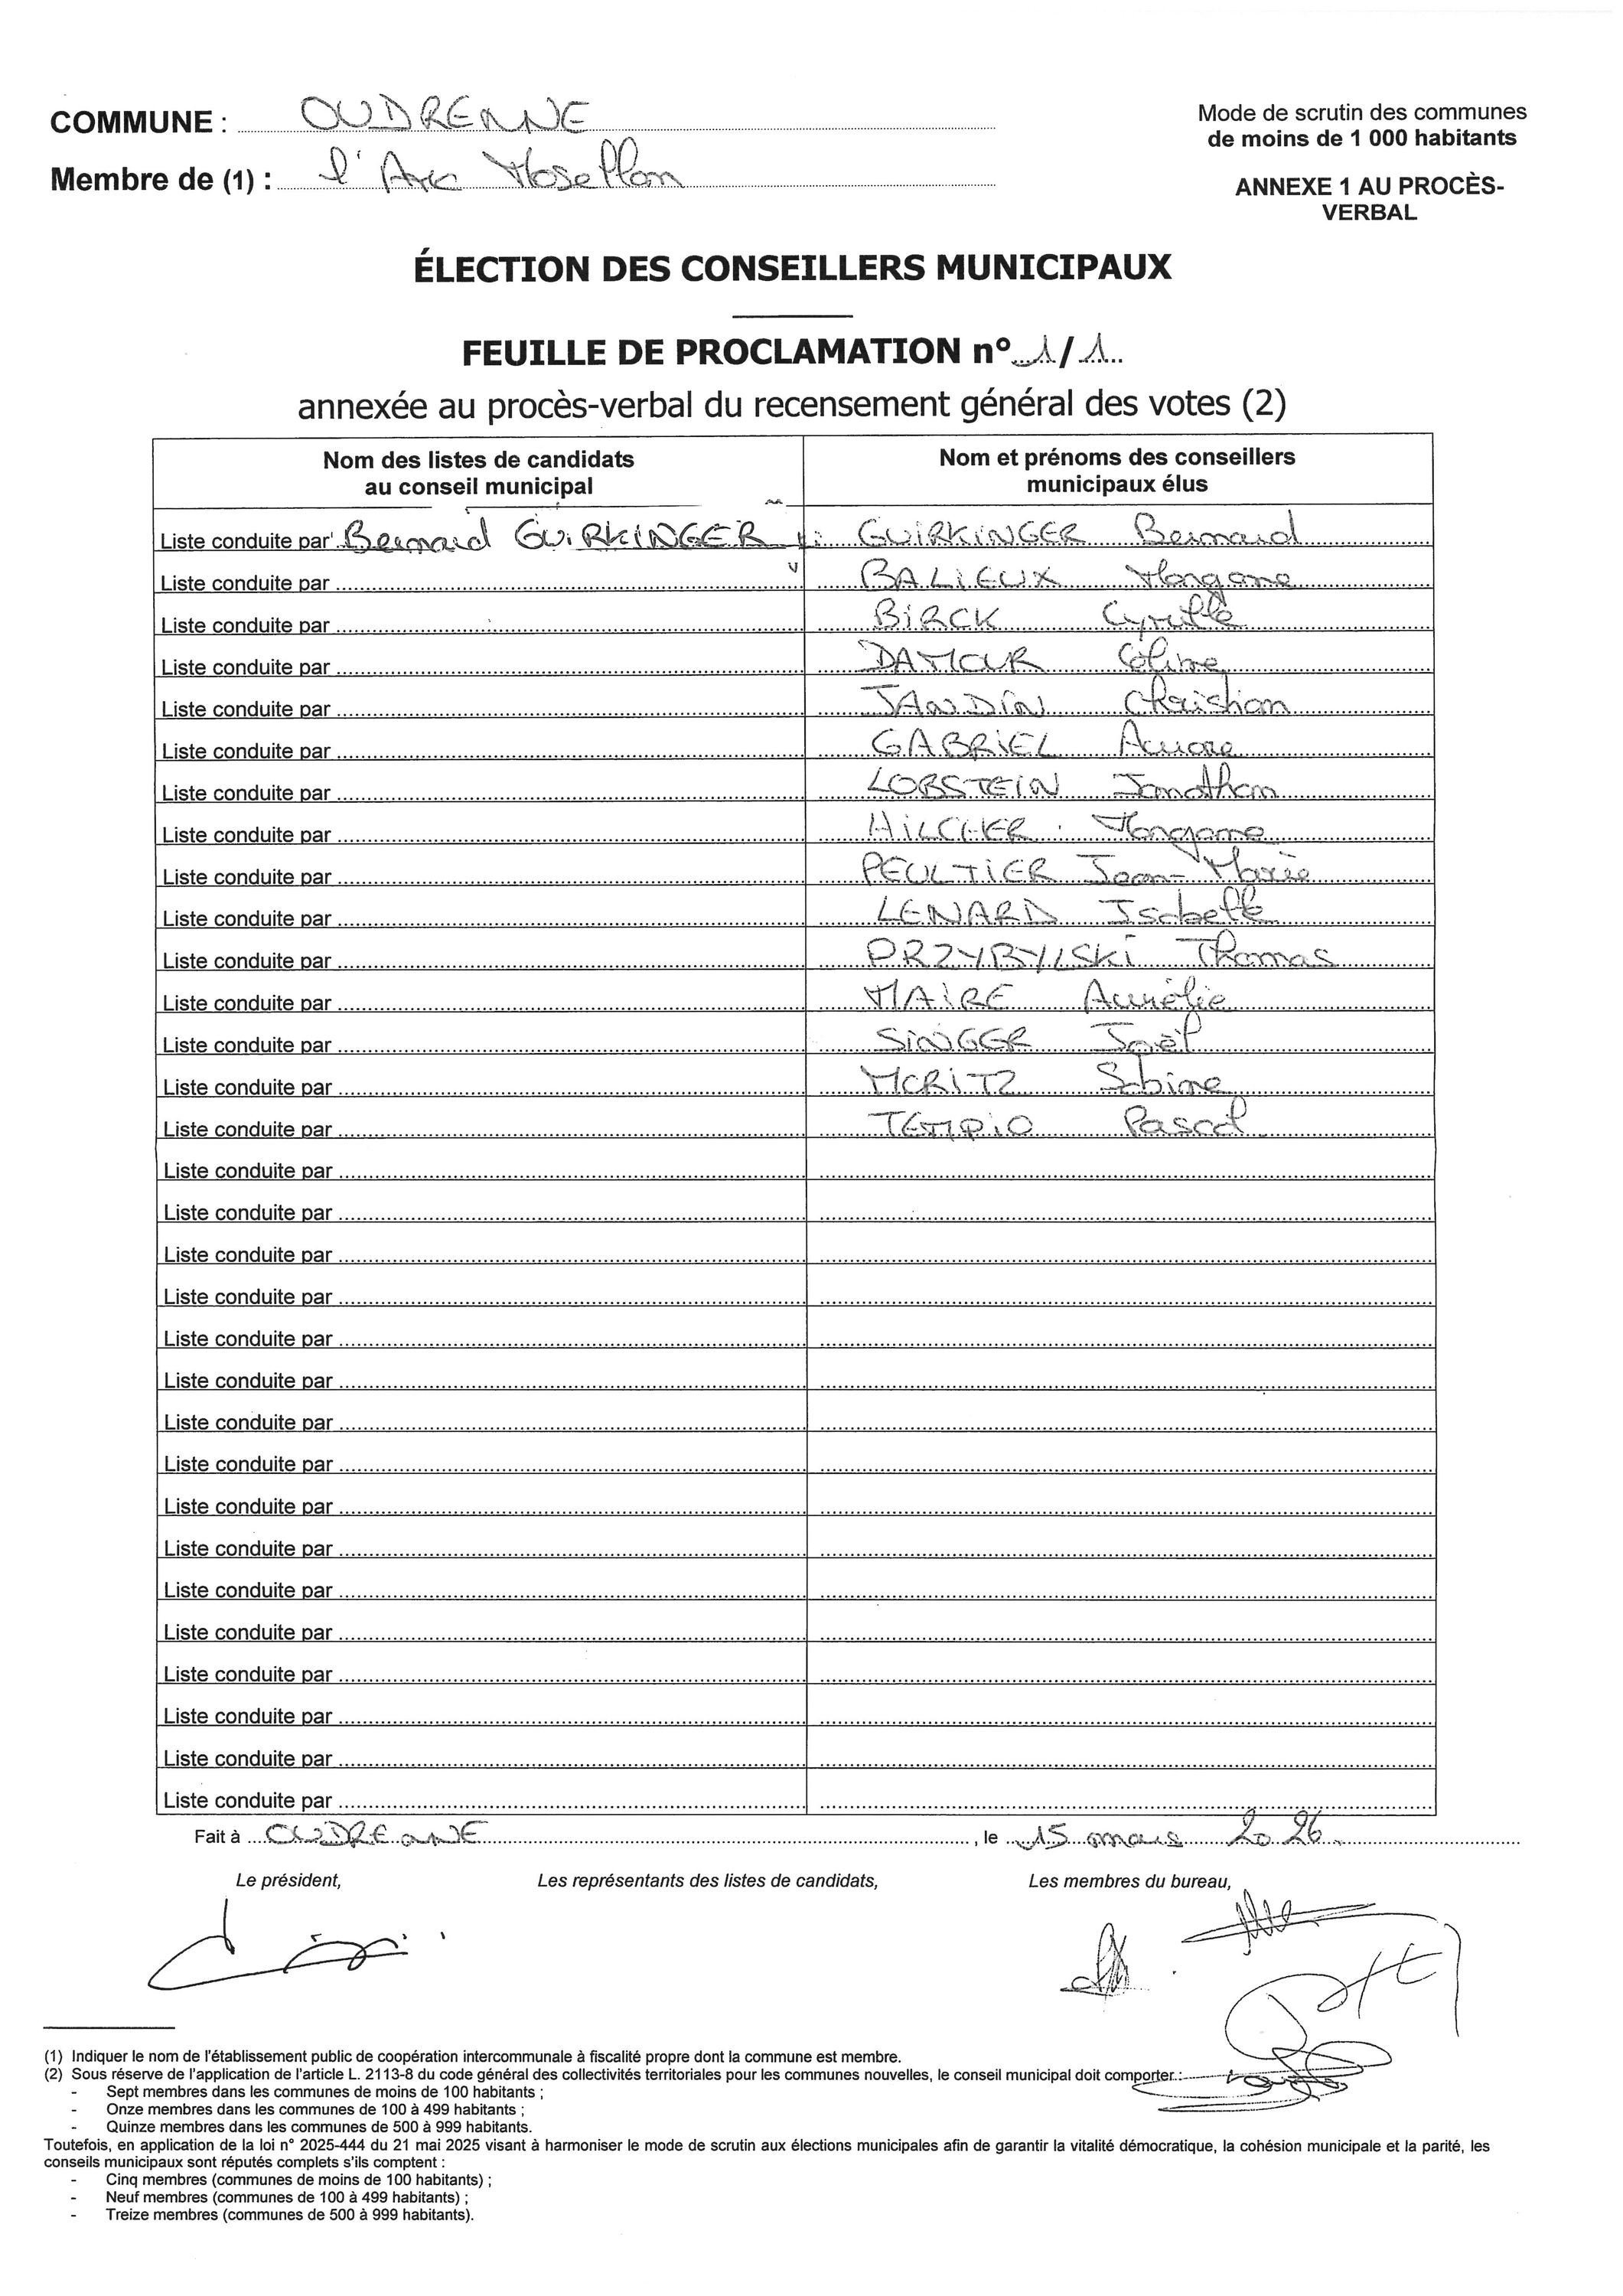 COMMUNE : OUDRENNE
Mode de scrutin des communes
de moins de 1 000 habitants
Membre de (1) : l'Arc Mosellan
ANNEXE 1 AU PROCÈS-
VERBAL
ÉLECTION DES CONSEILLERS MUNICIPAUX
FEUILLE DE PROCLAMATION n° 1/1
annexée au procès-verbal du recensement général des votes (2)
Nom des listes de candidats
au conseil municipal
Nom et prénoms des conseillers
municipaux élus
Liste conduite par Bernard GUIRKINGER GUIRKINGER Bernard
Liste conduite par BALIEUX Morgane
Liste conduite par BIRCK Cyrille
Liste conduite par DAMOUR Céline
Liste conduite par JANDIN Christian
Liste conduite par GABRIEL Aurore
Liste conduite par LOBSTEIN Jonathan
Liste conduite par HILCHER Morgane
Liste conduite par PEULTIER Jean-Marie
Liste conduite par LENARD Isabelle
Liste conduite par PRZYBYLSKI Thomas
Liste conduite par MAIRE Aurélie
Liste conduite par SINGER Joël
Liste conduite par MORITZ Sabine
Liste conduite par TEMPIO Pascal
Liste conduite par
Liste conduite par
Liste conduite par
Liste conduite par
Liste conduite par
Liste conduite par
Liste conduite par
Liste conduite par
Liste conduite par
Liste conduite par
Liste conduite par
Liste conduite par
Liste conduite par
Liste conduite par
Liste conduite par
Liste conduite par
Fait à OUDRENNE, le 15 mars 2026
Le président, Les représentants des listes de candidats, Les membres du bureau,
(1) Indiquer le nom de l'établissement public de coopération intercommunale à fiscalité propre dont la commune est membre.
(2) Sous réserve de l'application de l'article L. 2113-8 du code général des collectivités territoriales pour les communes nouvelles, le conseil municipal doit comporter :
- Sept membres dans les communes de moins de 100 habitants ;
- Onze membres dans les communes de 100 à 499 habitants ;
- Quinze membres dans les communes de 500 à 999 habitants.
Toutefois, en application de la loi n° 2025-444 du 21 mai 2025 visant à harmoniser le mode de scrutin aux élections municipales afin de garantir la vitalité démocratique, la cohésion municipale et la parité, les
conseils municipaux sont réputés complets s'ils comptent :
- Cinq membres (communes de moins de 100 habitants) ;
- Neuf membres (communes de 100 à 499 habitants) ;
- Treize membres (communes de 500 à 999 habitants).